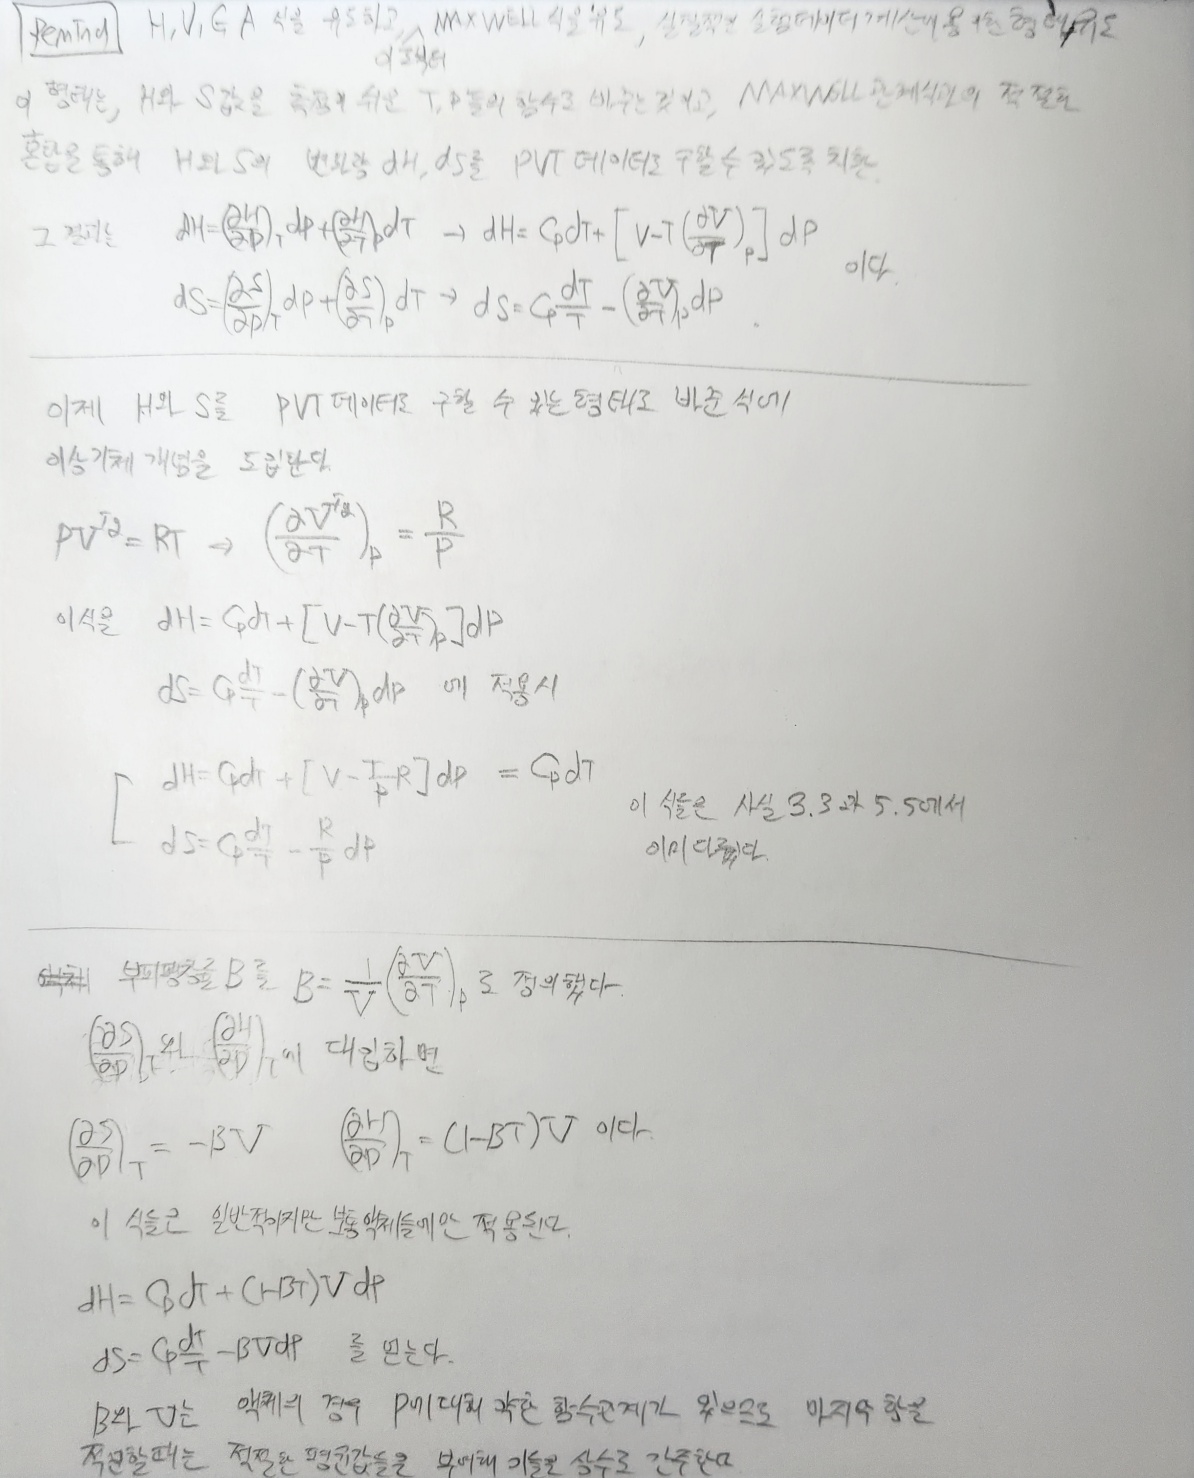 Remind H, U, G A 식을 유도하고, 이로부터 MAXWELL 식을 유도, 실질적인 실험데이터 계산에 용이한 형태 유도
이 형태는, H와 S 값을 측정이 쉬운 T, P들의 함수로 바꾸는 것이고, MAXWELL 관계식과의 적절한
혼합을 통해 H와 S의 변화량 dH, dS를 PVT 데이터로 구할 수 있도록 치환.
그 결과는 dH=(∂H/∂P)_T dP+(∂H/∂T)_P dT → dH= C_P dT+[V-T(∂V/∂T)_P] dP
이다.
dS=(∂S/∂P)_T dP+(∂S/∂T)_P dT → dS= C_P dT/T - (∂V/∂T)_P dP
이제 H와 S를 PVT 데이터로 구할 수 있는 형태로 바준 식에
이상기체 개념을 도입한다
PV^ig = RT → (∂V^ig/∂T)_P = R/P
이 식을 dH= C_P dT+[V-T(∂V/∂T)_P]dP
dS= C_P dT/T - (∂V/∂T)_P dP 에 적용시
dH= C_P dT + [V-T/P R] dP = C_P dT
이 식들은 사실 3.3과 5.5에서
dS= C_P dT/T - R/P dP
이미 다뤘다.
부피팽창률 B를 B= 1/V (∂V/∂T)_P 로 정의했다.
(∂S/∂P)_T 와 (∂H/∂P)_T 에 대입하면
(∂S/∂P)_T = -BV (∂H/∂P)_T = (1-BT)V 이다.
이 식들은 일반적이지만 보통 액체들에만 적용된다.
dH= C_P dT + (1-BT)V dP
dS= C_P dT/T - BVdP 를 얻는다.
B와 V는 액체의 경우 P에 대해 약한 함수관계가 있으므로 마지막 항을
적분할때는 적절한 평균값들을 부여해 이들을 상수로 간주한다